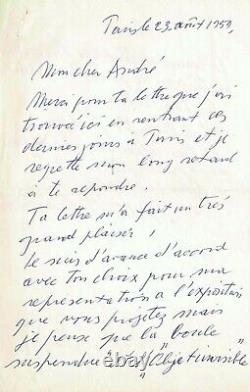 Paris le 23 août 1959,
Mon cher André
Merci pour ta lettre que j'ai
trouvé ici en rentrant ces
derniers jours à Paris et je
regrette mon long retard
à te repondre.
Ta lettre m'a fait un très
grand plaisir,
je suis d'avance d'accord
avec ton choix pour ma
representation a l'exposition
que vous projetez mais
je pense que la boule
suspendue "Objet invisible"